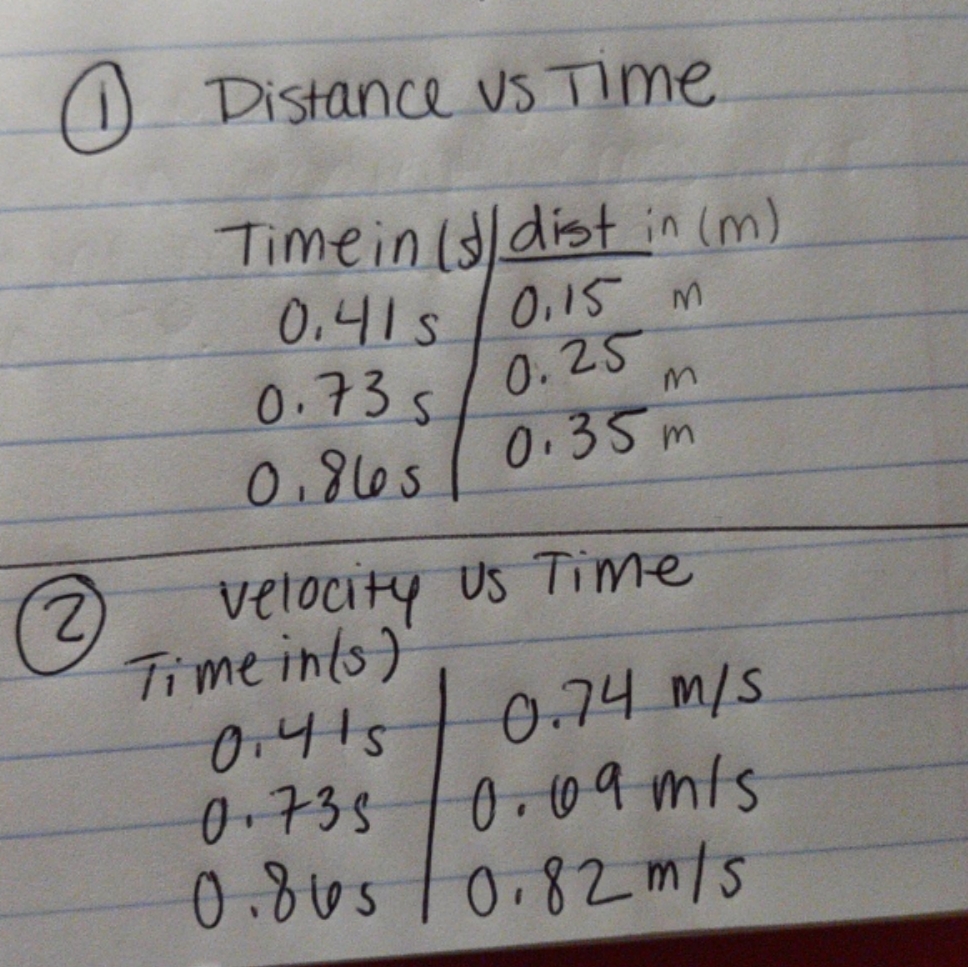 ① Distance vs Time
Time in (s) dist in (m)
0.41 s 0.15 m
0.73 s 0.25 m
0.86 s 0.35 m
② Velocity vs Time
Time in (s)
0.41s 0.74 m/s
0.73s 0.69 m/s
0.86s 0.82 m/s